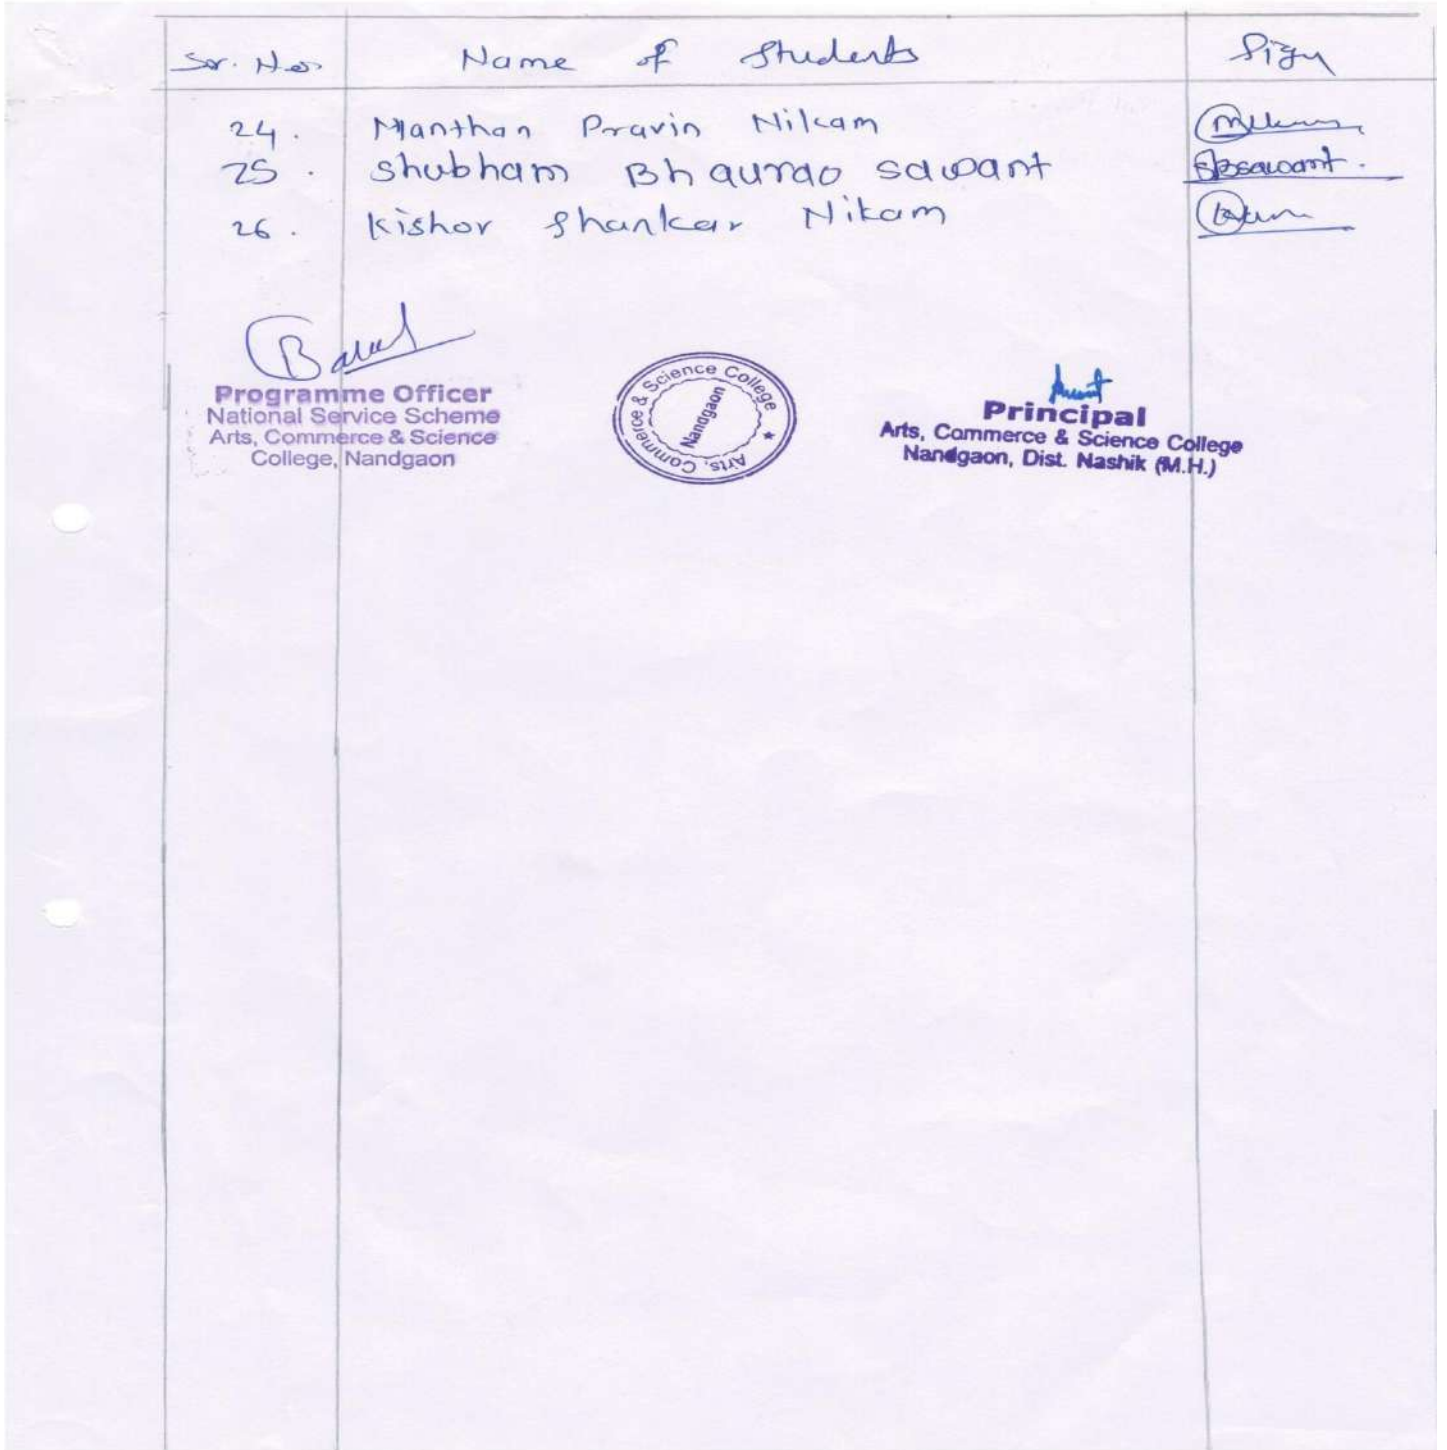 Sr. No. Name of Students Sign
24. Manthan Pravin Nikam
25. Shubham Bhaurao sawant SBsawant.
26. Kishor Shankar Nikam
Programme Officer
National Service Scheme
Arts, Commerce & Science
College, Nandgaon
Arts, Commerce & Science College
Nandgaon
Principal
Arts, Commerce & Science College
Nandgaon, Dist. Nashik (M.H.)